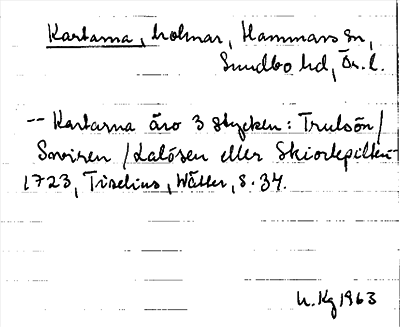 Kartarna, holmar, Hammars sn,
Sundbo hd, Ör. l.
-- Kartarna äro 3 stycken: Trulsön/
Soviren / Kalösen eller Skiortepilten--
1723, Tiselius, Wätter, s. 34.
h. Kg 1963